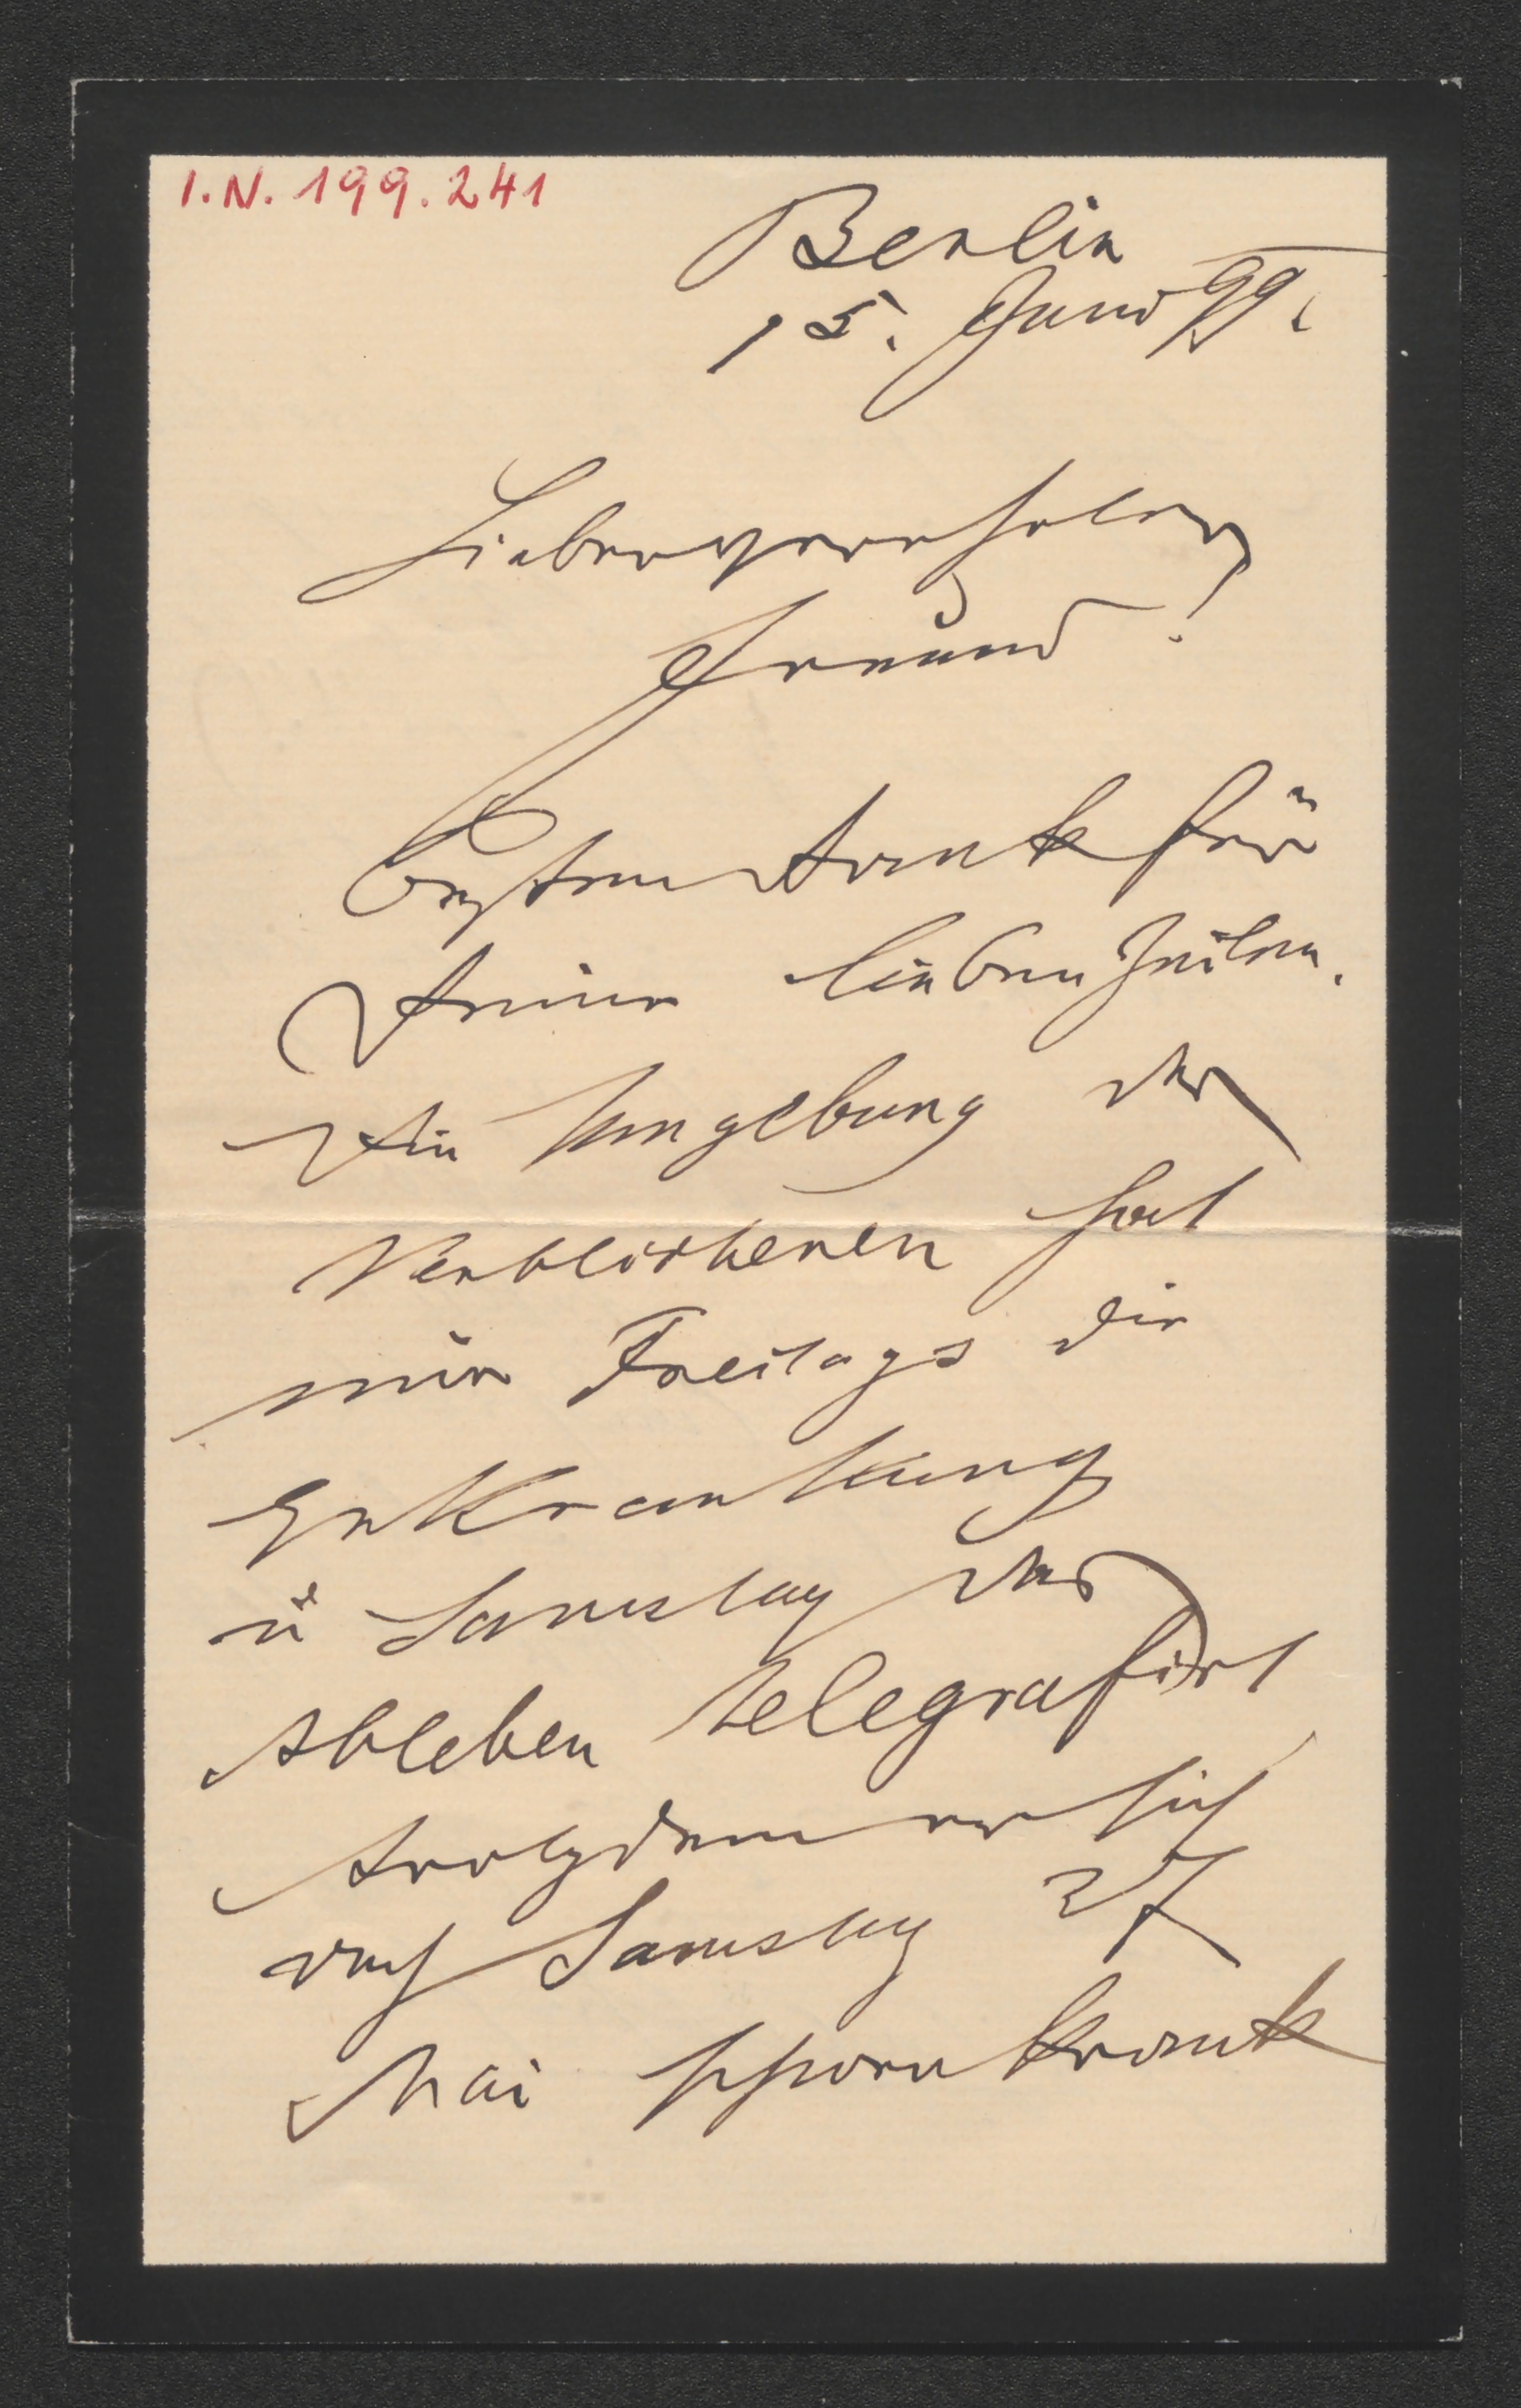 I.N. 199.241
Berlin
15. Juni 99.
Lieber verehrter
Freund!
Besten Dank für
Deine lieben Zeilen.
Die Umgebung des
Verblichenen hat
mir Freitags die
Erkrankung
u Samstag das
Ableben telegrafirt
trotzdem er sich
doch Samstag 27
Mai schwer krank